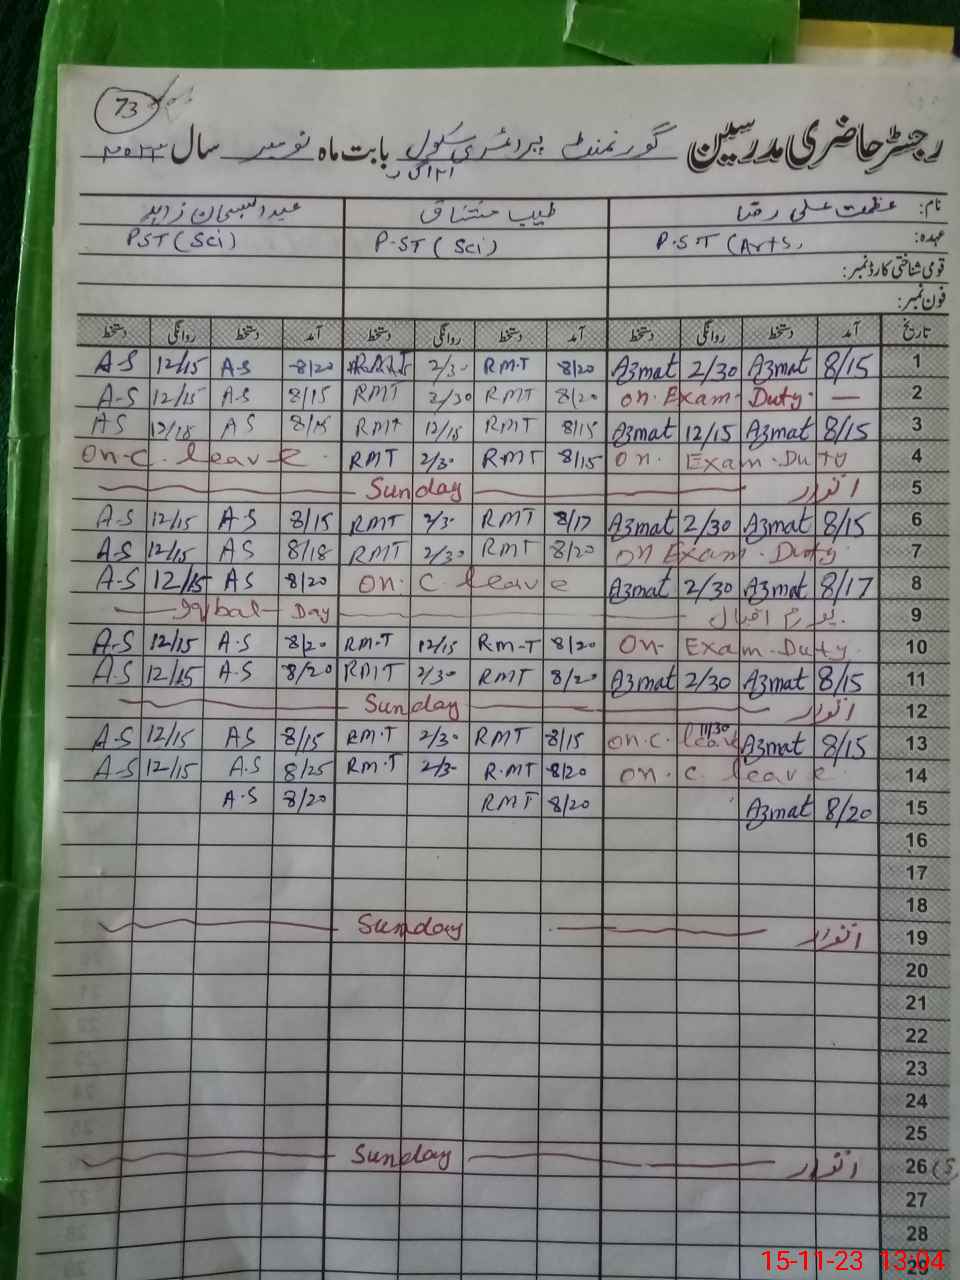 73
رجسٹر حاضری مدرسین گورنمنٹ پرائمری سکول بابت ماہ نومبر سال ۲۰۲۳
نام: عظمت علی رضا طیب مشتاق عبدالسبحان زاہد
عہدہ: P.S.T (Arts) P-ST (Sci) PST (Sci)
قومی شناختی کارڈ نمبر:
فون نمبر:
تاریخ آمد دستخط روانگی دستخط آمد دستخط روانگی دستخط آمد دستخط روانگی دستخط
A-S 12/15 A-S 8/20 2/30 RM-T 8/20 Azmat 2/30 Azmat 8/15 1
A-S 12/15 A-S 8/15 RMT 2/30 RMT 8/20 on Exam Duty — 2
AS AS RMT 12/15 RMT 8/15 Azmat 12/15 Azmat 8/15 3
On-C. leave. RMT 2/30 RMT 8/15 on. Exam-Duty 4
Sunday اتوار 5
A-S 12/15 A-S 8/15 RMT 2/30 RMT 8/17 Azmat 2/30 Azmat 8/15 6
A-S 12/15 AS 8/18 RMT 2/30 RMT 8/20 on Exam. Duty 7
A-S 12/15 AS 8/20 on. C. leave Azmat 2/30 Azmat 8/17 8
Iqbal Day یوم اقبال 9
A-S 12/15 A.S 8/20 RM-T 12/15 RM-T 8/20 On- Exam-Duty 10
A.S 12/15 A.S 8/20 RMT 2/30 RMT 8/20 Azmat 2/30 Azmat 8/15 11
Sunday اتوار 12
A-S 12/15 AS 8/15 RM-T 2/30 RMT 8/15 on.C. leave 11/30 Azmat 8/15 13
A-S 12/15 A.S 8/25 RM-T 2/30 R.MT 8/20 on. C. leave 14
A-S 8/20 RMT 8/20 Azmat 8/20 15
16
17
18
Sunday اتوار 19
20
21
22
23
24
25
Sunday اتوار 26
27
28
29
15-11-23 13:04